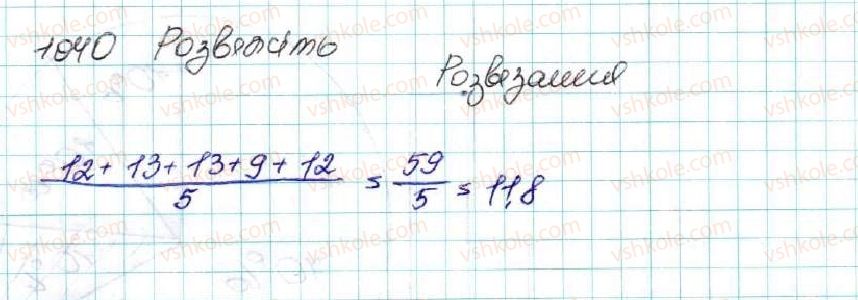 1040 Розвяжіть
Розвезання
12 + 13 + 13 + 9 + 12 / 5 = 59 / 5 = 11,8
vshkole.com